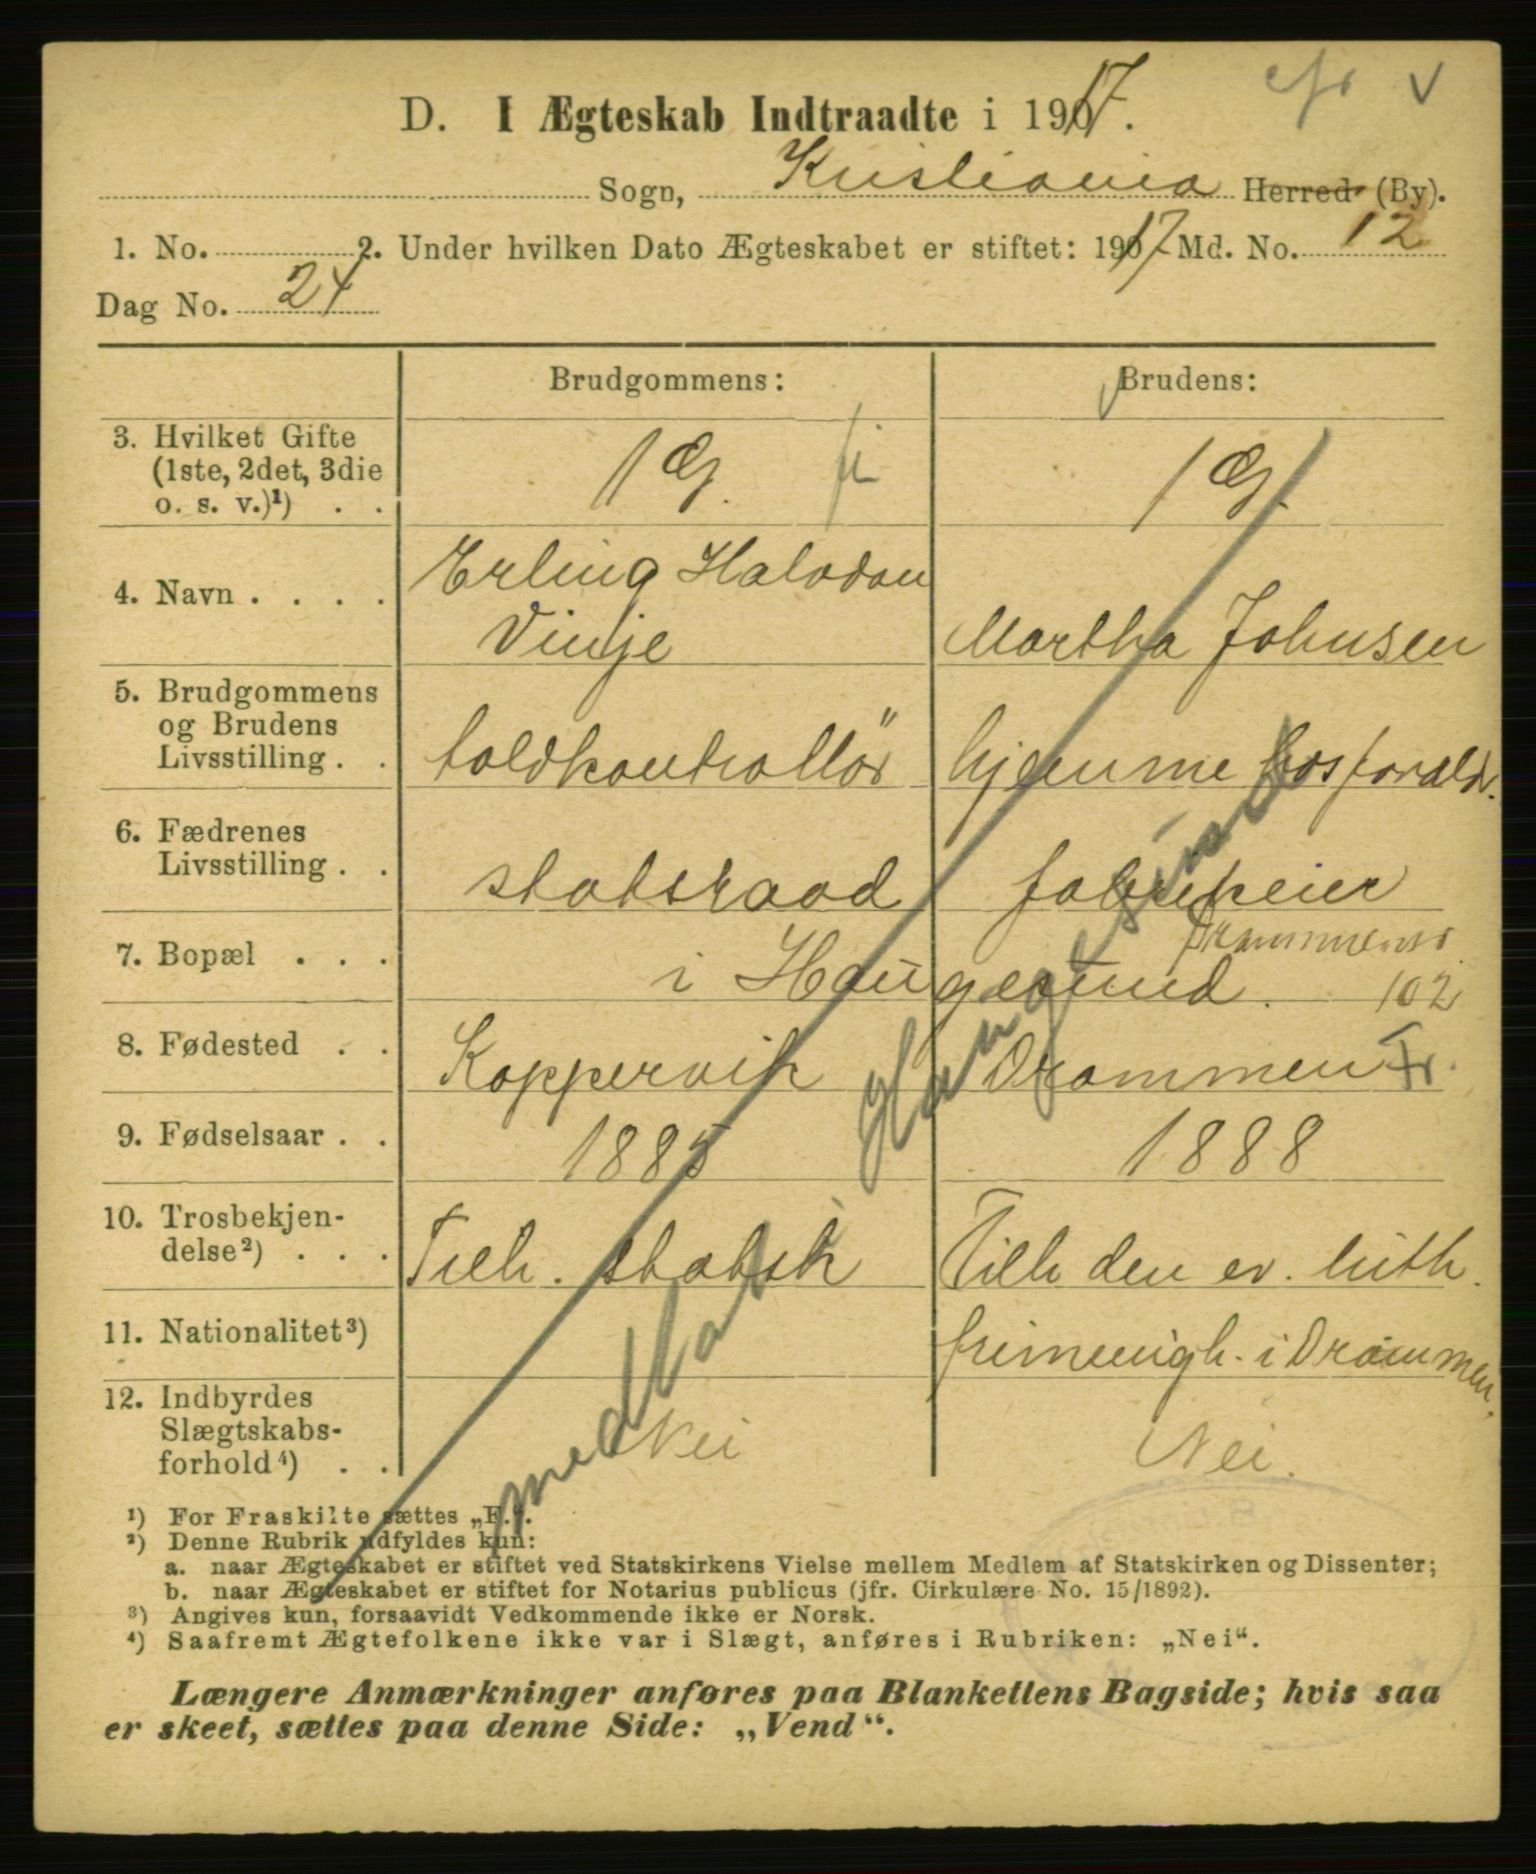 D. I Ægteskab Indtraadte i 1917.
Sogn, Kristiania Herred (By).
1. No. 2. Under hvilken Dato Ægteskabet er stiftet: 1917 Md. No. 12
Dag No. 24
Brudgommens: Brudens:
3. Hvilket Gifte
(1ste, 2det, 3die
o. s. v.)¹) . .
1 Æg. 1 Æg.
4. Navn . . . .
Erling Halvdan
Vinje
Martha Johnsen
5. Brudgommens
og Brudens
Livsstilling . .
toldkontrollör hjemme hos foræld.
6. Fædrenes
Livsstilling . .
statsraad fabrikeier
7. Bopæl . . .
i Haugesund. 102
8. Fødested . .
Koppervik Drammen Fr.
9. Fødselsaar . .
1885 1888
10. Trosbekjen-
delse²) . . .
Tilh. statsk Tilh den ev. luth.
frimenigh. i Drammen.
11. Nationalitet³)
12. Indbyrdes
Slægtskabs-
forhold⁴) . .
Nei Nei.
medtat i Haugesund
¹) For Fraskilte sættes „F.“.
²) Denne Rubrik udfyldes kun:
a. naar Ægteskabet er stiftet ved Statskirkens Vielse mellem Medlem af Statskirken og Dissenter;
b. naar Ægteskabet er stiftet for Notarius publicus (jfr. Cirkulære No. 15/1892).
³) Angives kun, forsaavidt Vedkommende ikke er Norsk.
⁴) Saafremt Ægtefolkene ikke var i Slægt, anføres i Rubriken: „Nei“.
Længere Anmærkninger anføres paa Blankettens Bagside; hvis saa
er skeet, sættes paa denne Side: „Vend“.